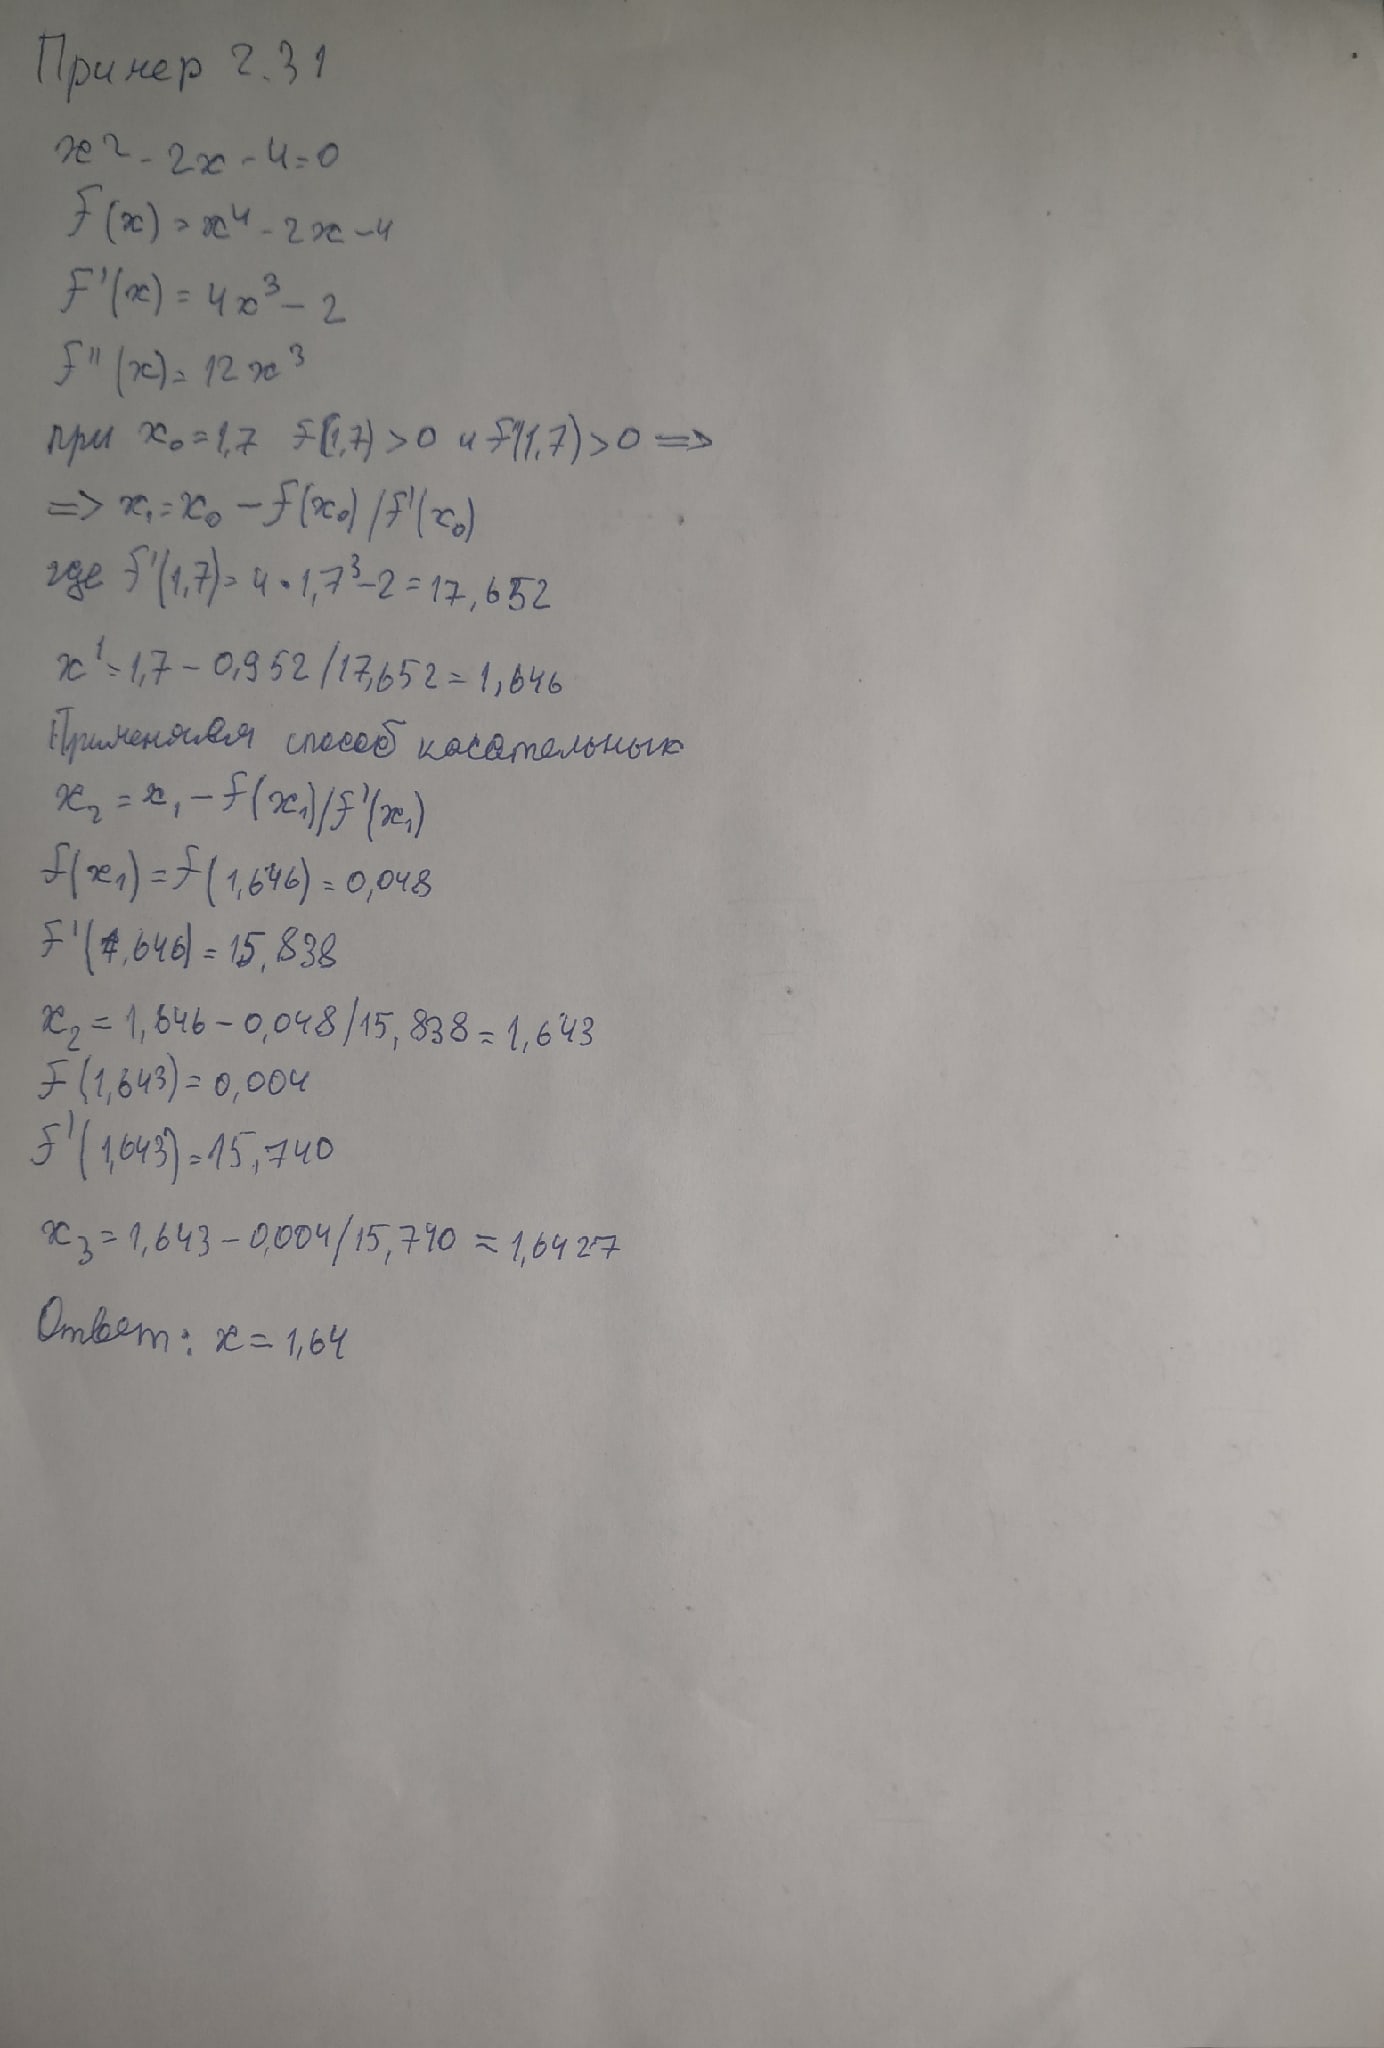 Пример 2.31
x² - 2x - 4 = 0
f(x) = x⁴ - 2x - 4
f'(x) = 4x³ - 2
f''(x) = 12x³
при x₀ = 1,7 f(1,7) > 0 и f''(1,7) > 0 =>
=> x₁ = x₀ - f(x₀) / f'(x₀)
где f'(1,7) = 4 • 1,7³ - 2 = 17,652
x¹ = 1,7 - 0,952 / 17,652 = 1,646
Применяя способ касательных
x₂ = x₁ - f(x₁) / f'(x₁)
f(x₁) = f(1,646) = 0,048
f'(1,646) = 15,838
x₂ = 1,646 - 0,048 / 15,838 = 1,643
f(1,643) = 0,004
f'(1,643) = 15,740
x₃ = 1,643 - 0,004 / 15,740 = 1,6427
Ответ: x = 1,64